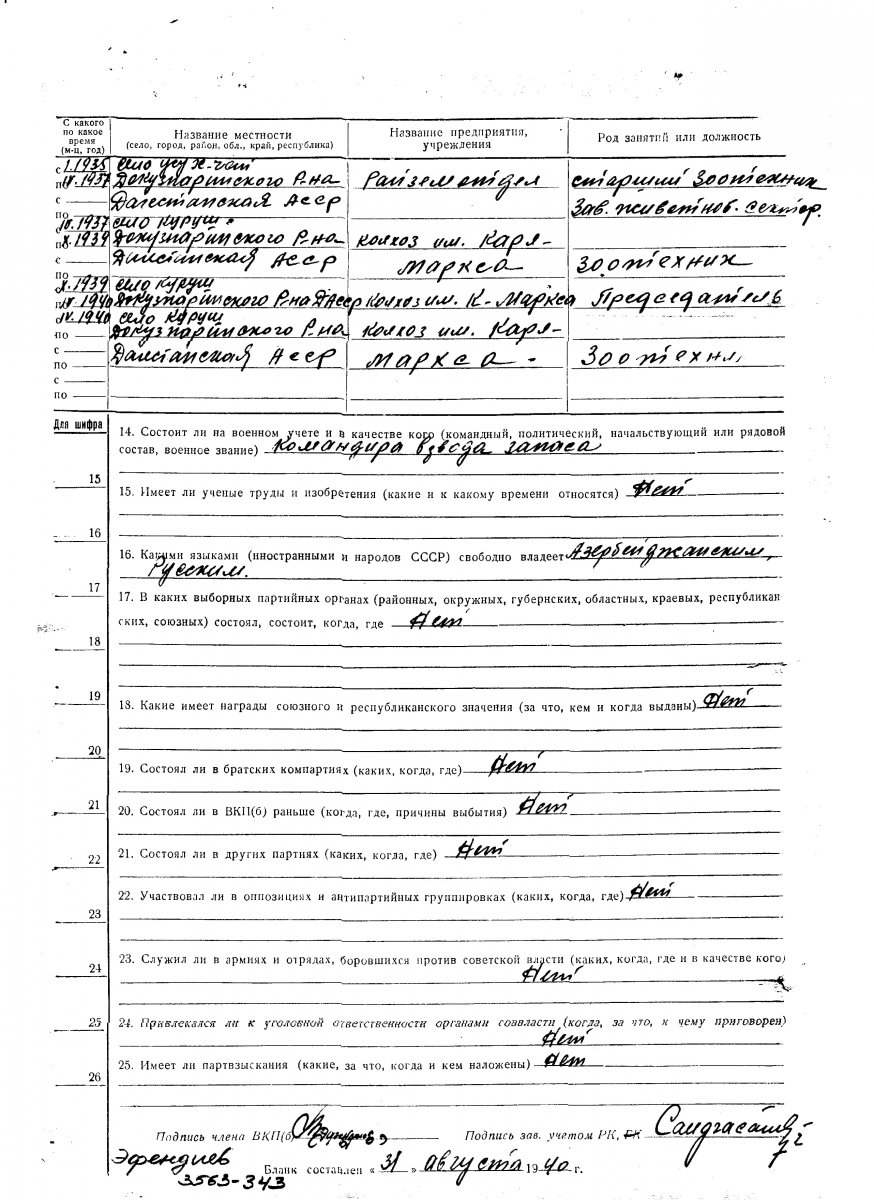 С какого по какое время (м-ц, год)
Название местности
(село, город, район, обл., край, республика)
Название предприятия, учреждения
Род занятий или должность
с I.1935 село Усух-чай
по IV.1937 Докузпаринского Р-на Райземотдел старший Зоотехник
с Дагестанская АССР Зав. животнов. сектор.
по
IV.1937 село Куруш
по X.1939 Докузпаринского Р-на колхоз им. Карл-
с Дагестанская АССР Маркса Зоотехник
по
X.1939 село Куруш
по IV.1940 Докузпаринского Р-на ДАССР колхоз им. К-Маркса Председатель
IV.1940 село Куруш
по Докузпаринского Р-на колхоз им. Карл-
с Дагестанская АССР Маркса - Зоотехни
по
с
по
Для шифра
14. Состоит ли на военном учете и в качестве кого (командный, политический, начальствующий или рядовой
состав, военное звание) Командира взвода запаса
15
15. Имеет ли ученые труды и изобретения (какие и к какому времени относятся) Нет
16
16. Какими языками (иностранными и народов СССР) свободно владеет Азербейджанским,
Русским.
17
17. В каких выборных партийных органах (районных, окружных, губернских, областных, краевых, республикан
ских, союзных) состоял, состоит, когда, где Нет
18
19
18. Какие имеет награды союзного и республиканского значения (за что, кем и когда выданы) Нет
20
19. Состоял ли в братских компартиях (каких, когда, где) Нет
21
20. Состоял ли в ВКП(б) раньше (когда, где, причины выбытия) Нет
22
21. Состоял ли в других партиях (каких, когда, где) Нет
22. Участвовал ли в оппозициях и антипартийных группировках (каких, когда, где) Нет
23
23. Служил ли в армиях и отрядах, боровшихся против советской власти (каких, когда, где и в качестве кого)
24
Нет
25
24. Привлекался ли к уголовной ответственности органами соввласти (когда, за что, к чему приговорен)
Нет
25. Имеет ли партвзыскания (какие, за что, когда и кем наложены) Нет
26
Подпись члена ВКП(б) Подпись зав. учетом РК, ГК
Эфендиев
Бланк составлен « 31 » августа 1940 г.
3563-343